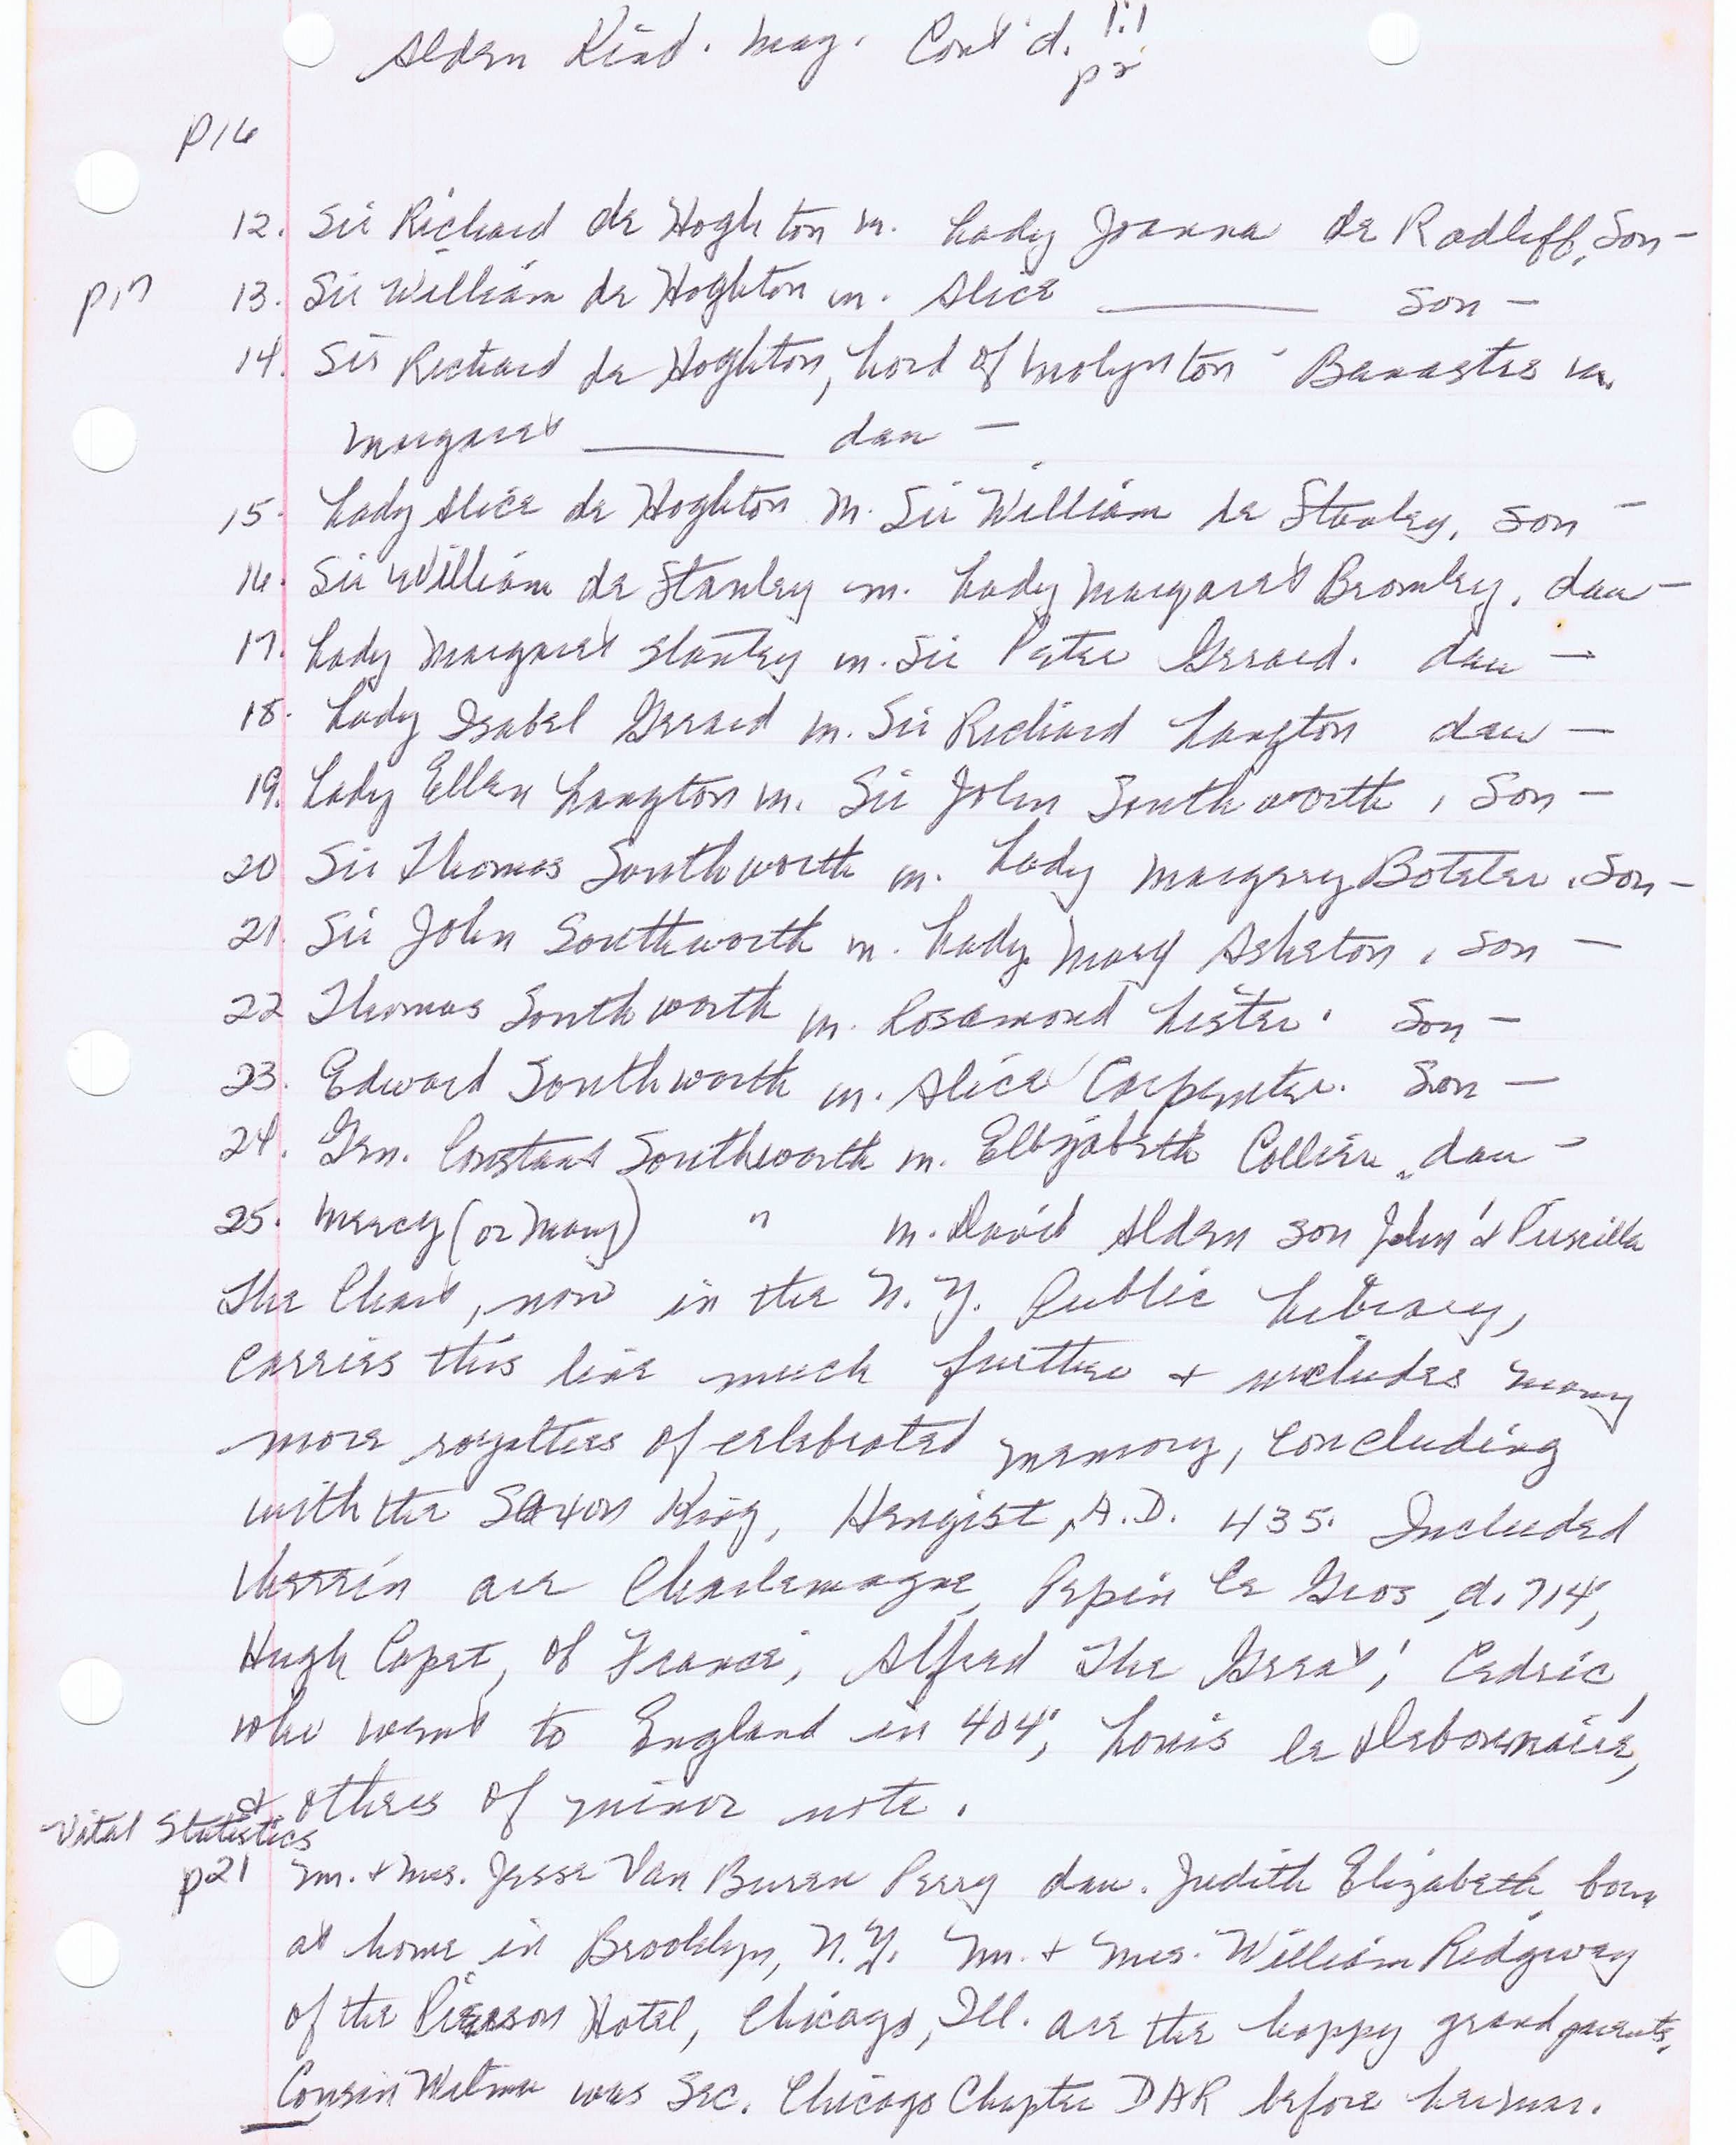 Alden Kind. Mag. Cont'd. 1:1
p 2
p16
12. Sir Richard de Hoghton m. Lady Joanna de Radliff, Son -
p17 13. Sir William de Hoghton m. Alice ______ Son -
14. Sir Richard de Hoghton, Lord of Molynton - Banastes m.
Margaret ______ dau -
15. Lady Alice de Hoghton M. Sir William de Stanley, son -
16. Sir William de Stanley m. Lady Margaret Bromley, dau -
17. Lady Margaret Stanley m. Sir Peter Gerard. dau -
18. Lady Isabel Gerard m. Sir Richard Langton dau -
19. Lady Ellen Langton m. Sir John Southworth, Son -
20 Sir Thomas Southworth m. Lady Margery Boteler, Son -
21. Sir John Southworth m. Lady Mary Asheton, son -
22 Thomas Southworth m. Rosamond Lister. Son -
23. Edward Southworth m. Alice Carpenter. Son -
24. Gen. Constant Southworth m. Elizabeth Collier, dau -
25. Mercy (or Mary) " m. David Alden son John & Priscilla
The Chart, now in the N.Y. Public Library,
carries this line much further & includes many
more royalties of celebrated memory, concluding
with the Saxon King, Hengist, A.D. 435. Included
therein are Charlemagne, Pepin le Gros, d. 714;
Hugh Capet, of France; Alfred The Great; Cedric,
who went to England in 404; Louis le Debonnaire,
& others of minor note.
Vital Statistics
p21 Mr. & Mrs. Jesse Van Buren Perry dau. Judith Elizabeth born
at home in Brooklyn, N.Y. Mr. & Mrs. William Ridgway
of the Pierson Hotel, Chicago, Ill. are the happy grandparents.
Cousin Wilma was Sec. Chicago Chapter DAR before